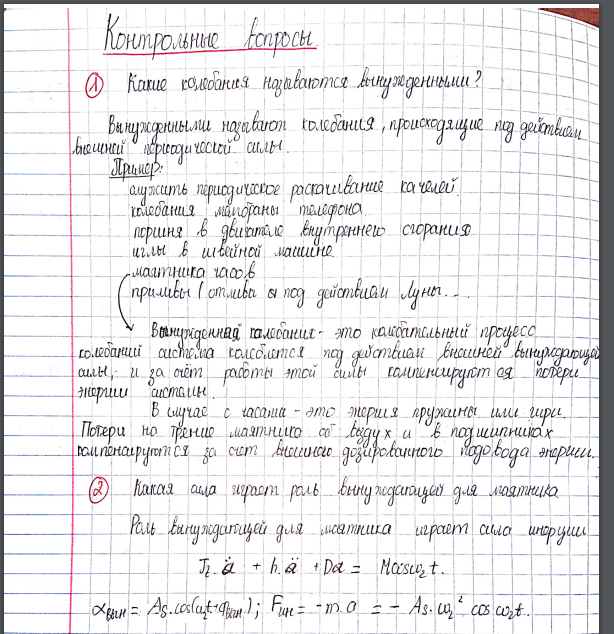 Контрольные вопросы.
1 Какие колебания называются вынужденными?
Вынужденными называют колебания, происходящие под действием
внешней периодической силы.
Пример:
служить периодическое раскачивание качелей
колебания мембраны телефона
поршня в двигателе внутреннего сгорания
иглы в швейной машине
маятника часов
приливы/отливы под действием Луны...
Вынужденная колебания - это колебательный процесс
колебаний система колеблется под действием внешней вынуждающей
силы, и за счёт работы этой силы компенсируются потери
энергии системы.
В случае с часами - это энергия пружины или гири.
Потери на трение маятника об воздух и в подшипниках
компенсируются за счет внешнего дозированного подвода энергии.
2 Какая сила играет роль вынуждающей для маятника
Роль вынуждающей для маятника играет сила инерции
J₂.ä + h.ä + Dα = 
αвын = As.cos(ω₂t+φвын); Fин = -m.a = - As.ω₂² cos ω₂t.